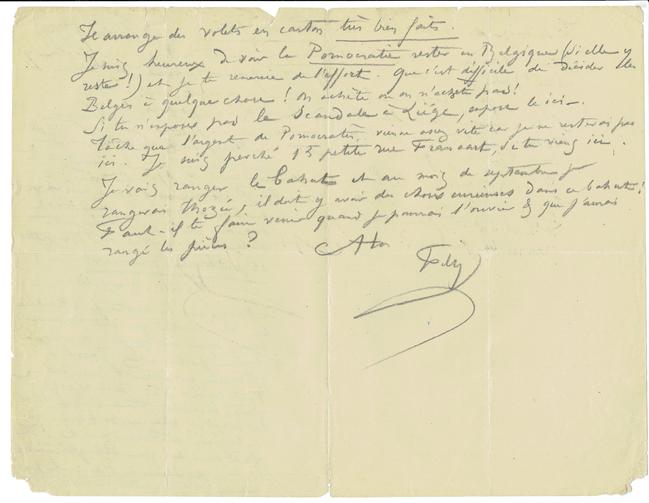 Je arrange des volets en carton très bien faits.
Je suis heureux de voir la Pornocratie rester en Belgique (si elle y
reste !) et je te remercie de l'effort. Que c'est difficile de décider les
Belges à quelque chose ! on achète ou on n'achète pas !
Si tu n'exposes pas le Scandale à Liége, apporte le ici –
Tâche que l'argent de Pornocratès, vienne assez vite car je ne resterai pas
ici. Je suis perché 15 petite rue Francart, si tu viens ici.
Je vais ranger le bahut et au mois de septembre je
rangerai Thozée, il doit y avoir des choses curieuses dans ce bahut !
Faut-il te faire venir quand je pourrai l'ouvrir & que j'aurai
rangé les pièces ?
A toi
Fély